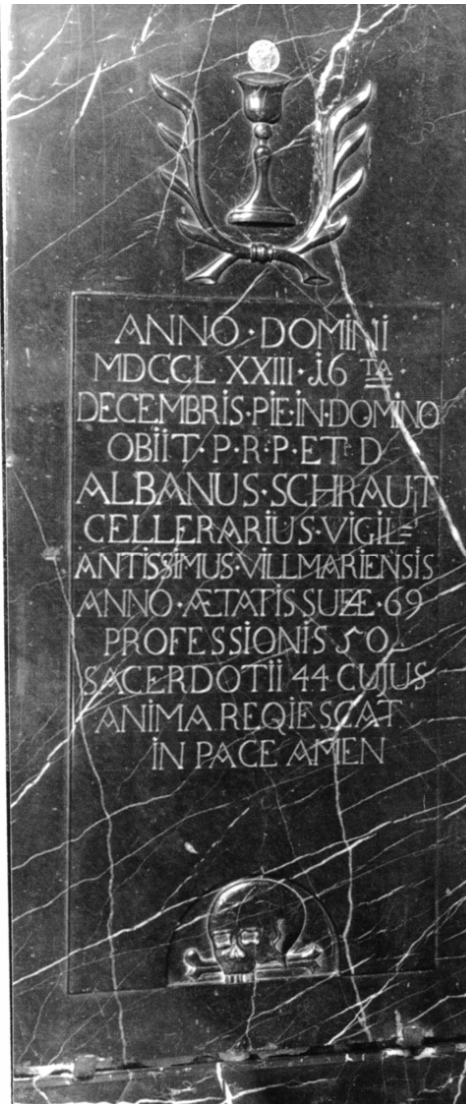 ANNO·DOMINI
MDCCLXXIII·16 TA·
DECEMBRIS·PIE·IN·DOMINO
OBIIT·P·R·P·ET·D
ALBANUS·SCHRAUT
CELLERARIUS·VIGIL=
ANTISSIMUS·VILLMARIENSIS
ANNO·ÆTATIS SUÆ·69
PROFESSIONIS 50
SACERDOTII 44 CUJUS
ANIMA REQIESCAT
IN PACE AMEN